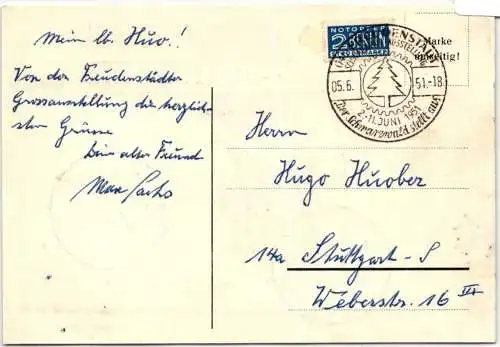 Mein lb. Huo!
Von der Freudenstädter
Grossausstellung die herzlich-
sten Grüsse
Dein alter Freund
Max Sachs
NOTOPFER
2 BERLIN
STEUERMARKE
05.6. 51.-18
2.-11. JUNI 1951
Der Schwarzwald stellt aus
Marke
ungültig!
Herrn
Hugo Huober
14a Stuttgart-S
Weberstr. 16 III